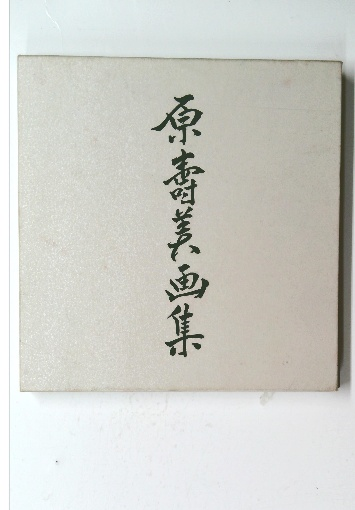 原壽美画集